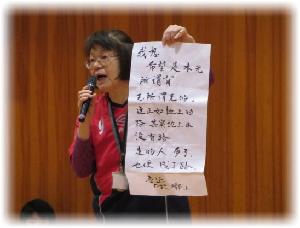 我想
希望是本無
所謂有
无所謂无的,
這正如地上的
路,其實地上本
沒有路
走的人多了,
也便成了路。
魯迅